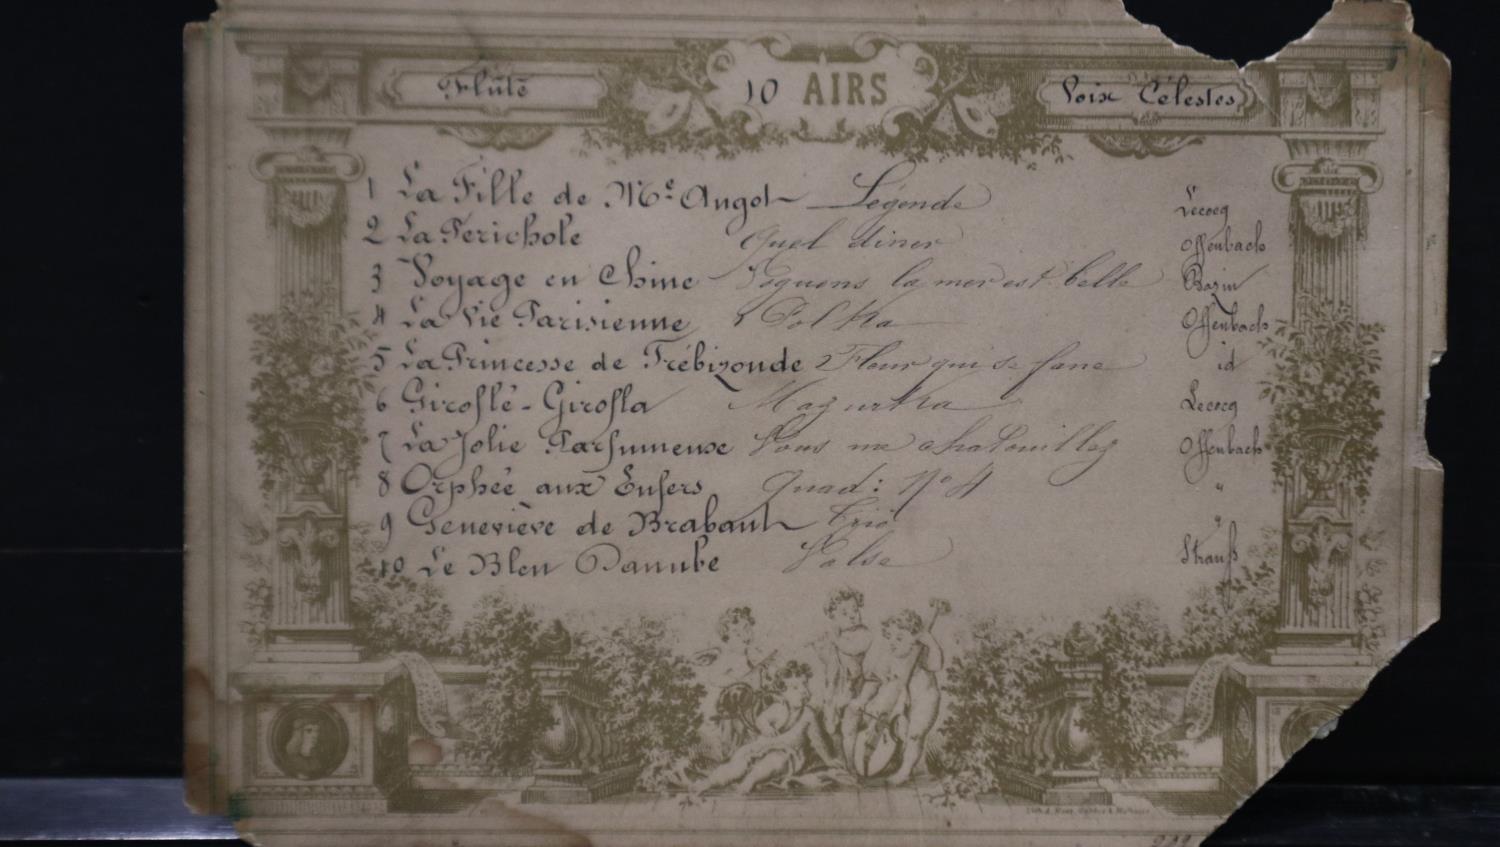 Flûte 10 AIRS Voix Célestes
1 La Fille de Mᵉ Angot Légende Lecocq
2 La Perichole Quel diner Offenbach
3 Voyage en Chine Voguons la mer est belle Bazin
4 La Vie Parisienne Polka Offenbach
5 La Princesse de Trébizonde Fleur qui se fane id
6 Giroflé-Girofla Mazurka Lecocq
7 La Jolie Parfumeuse Vous me chatouillez Offenbach
8 Orphée aux Enfers Quad: Nº 4 "
9 Geneviève de Brabant Trio "
10 Le Bleu Danube Valse Strauß